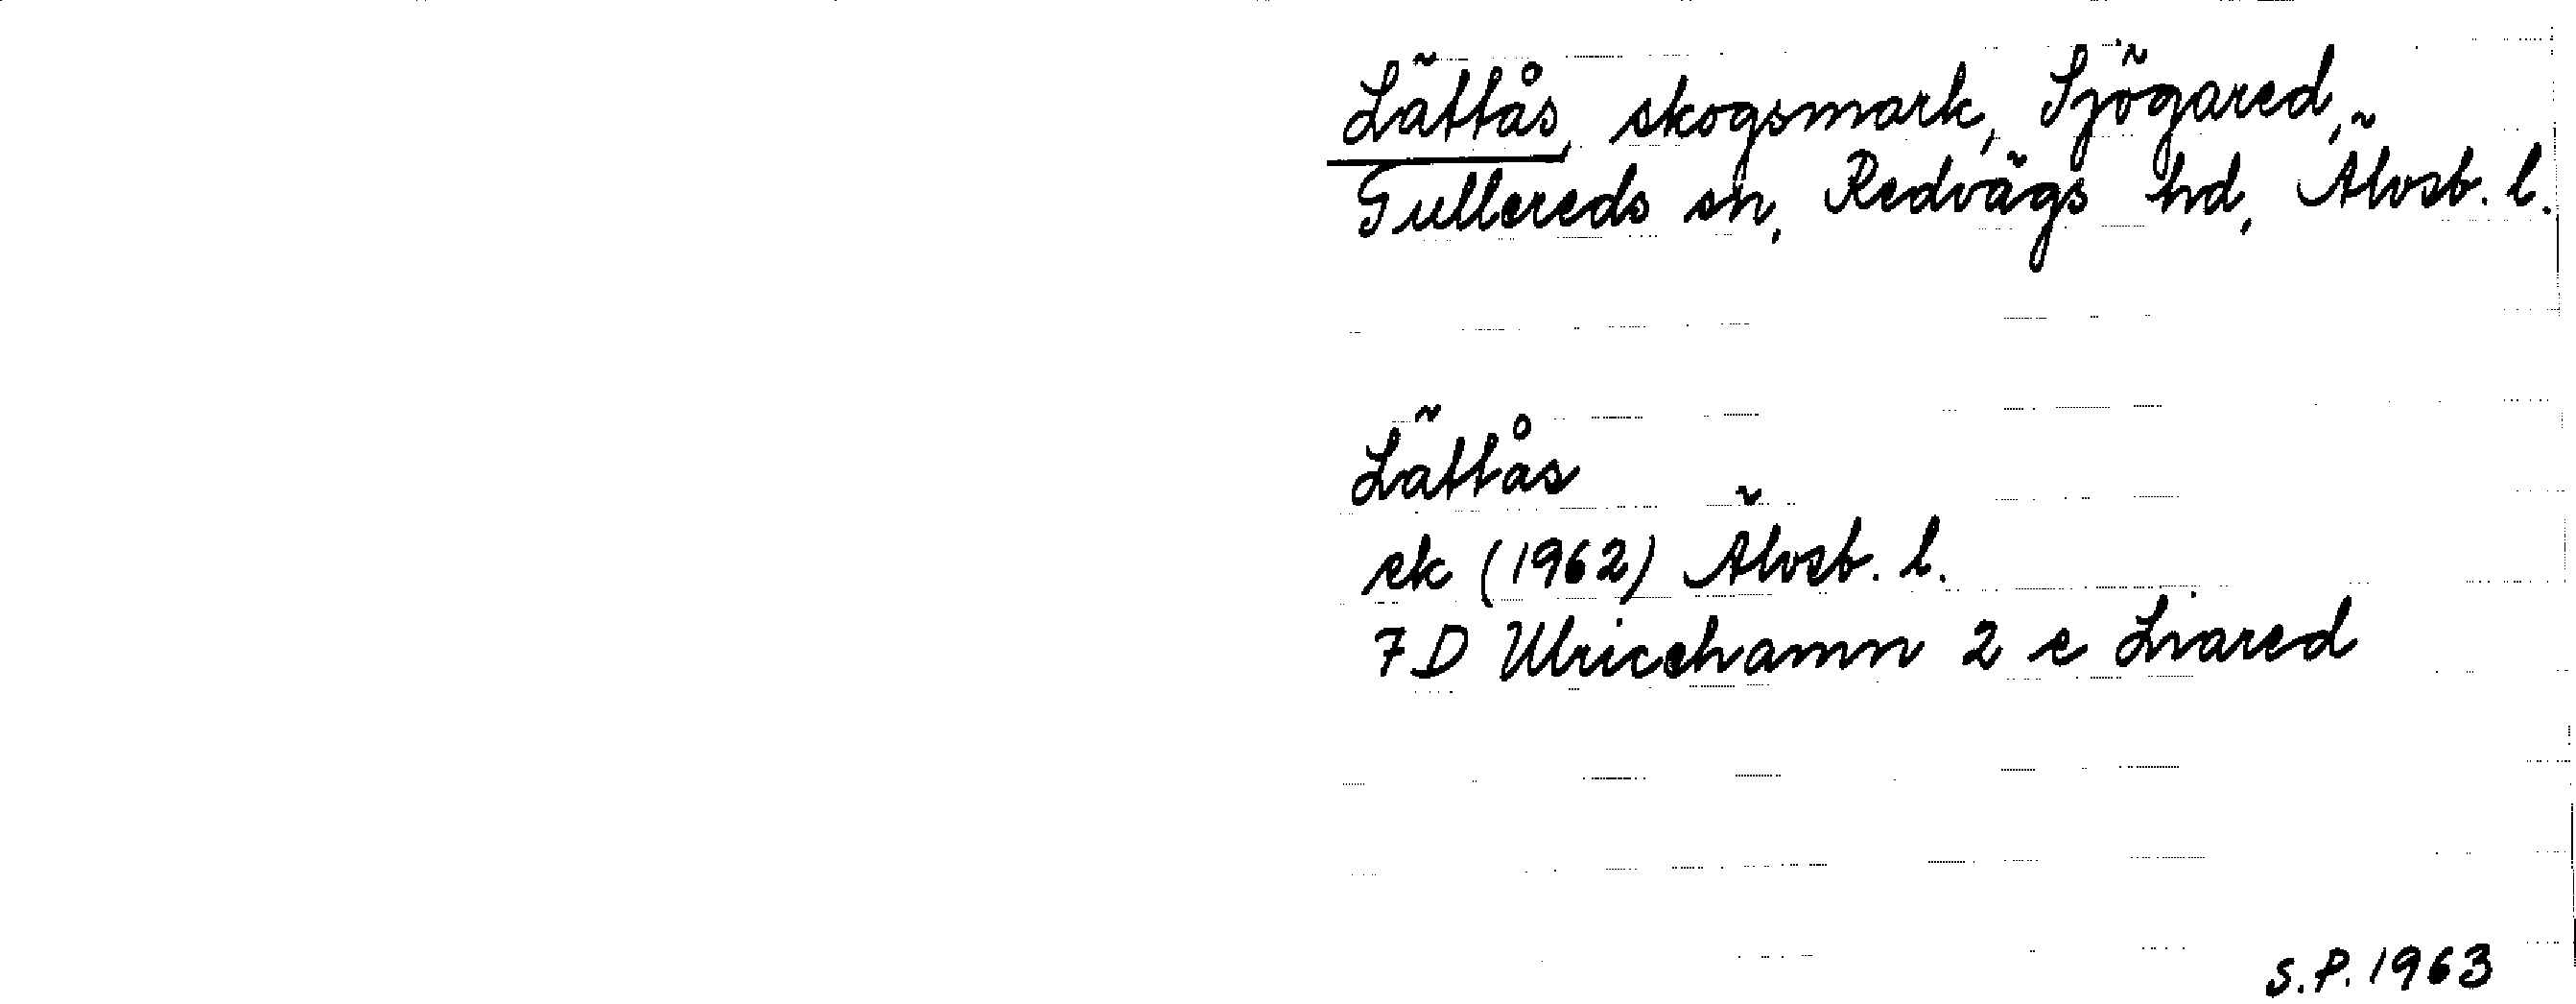 Lättås, skogsmark, Sjögared,
Gullereds sn, Redvägs hd, Älvsb. l.
Lättås
ek (1962) Älvsb. l.
7 D Ulricehamn 2 e Liared
S.P. 1963